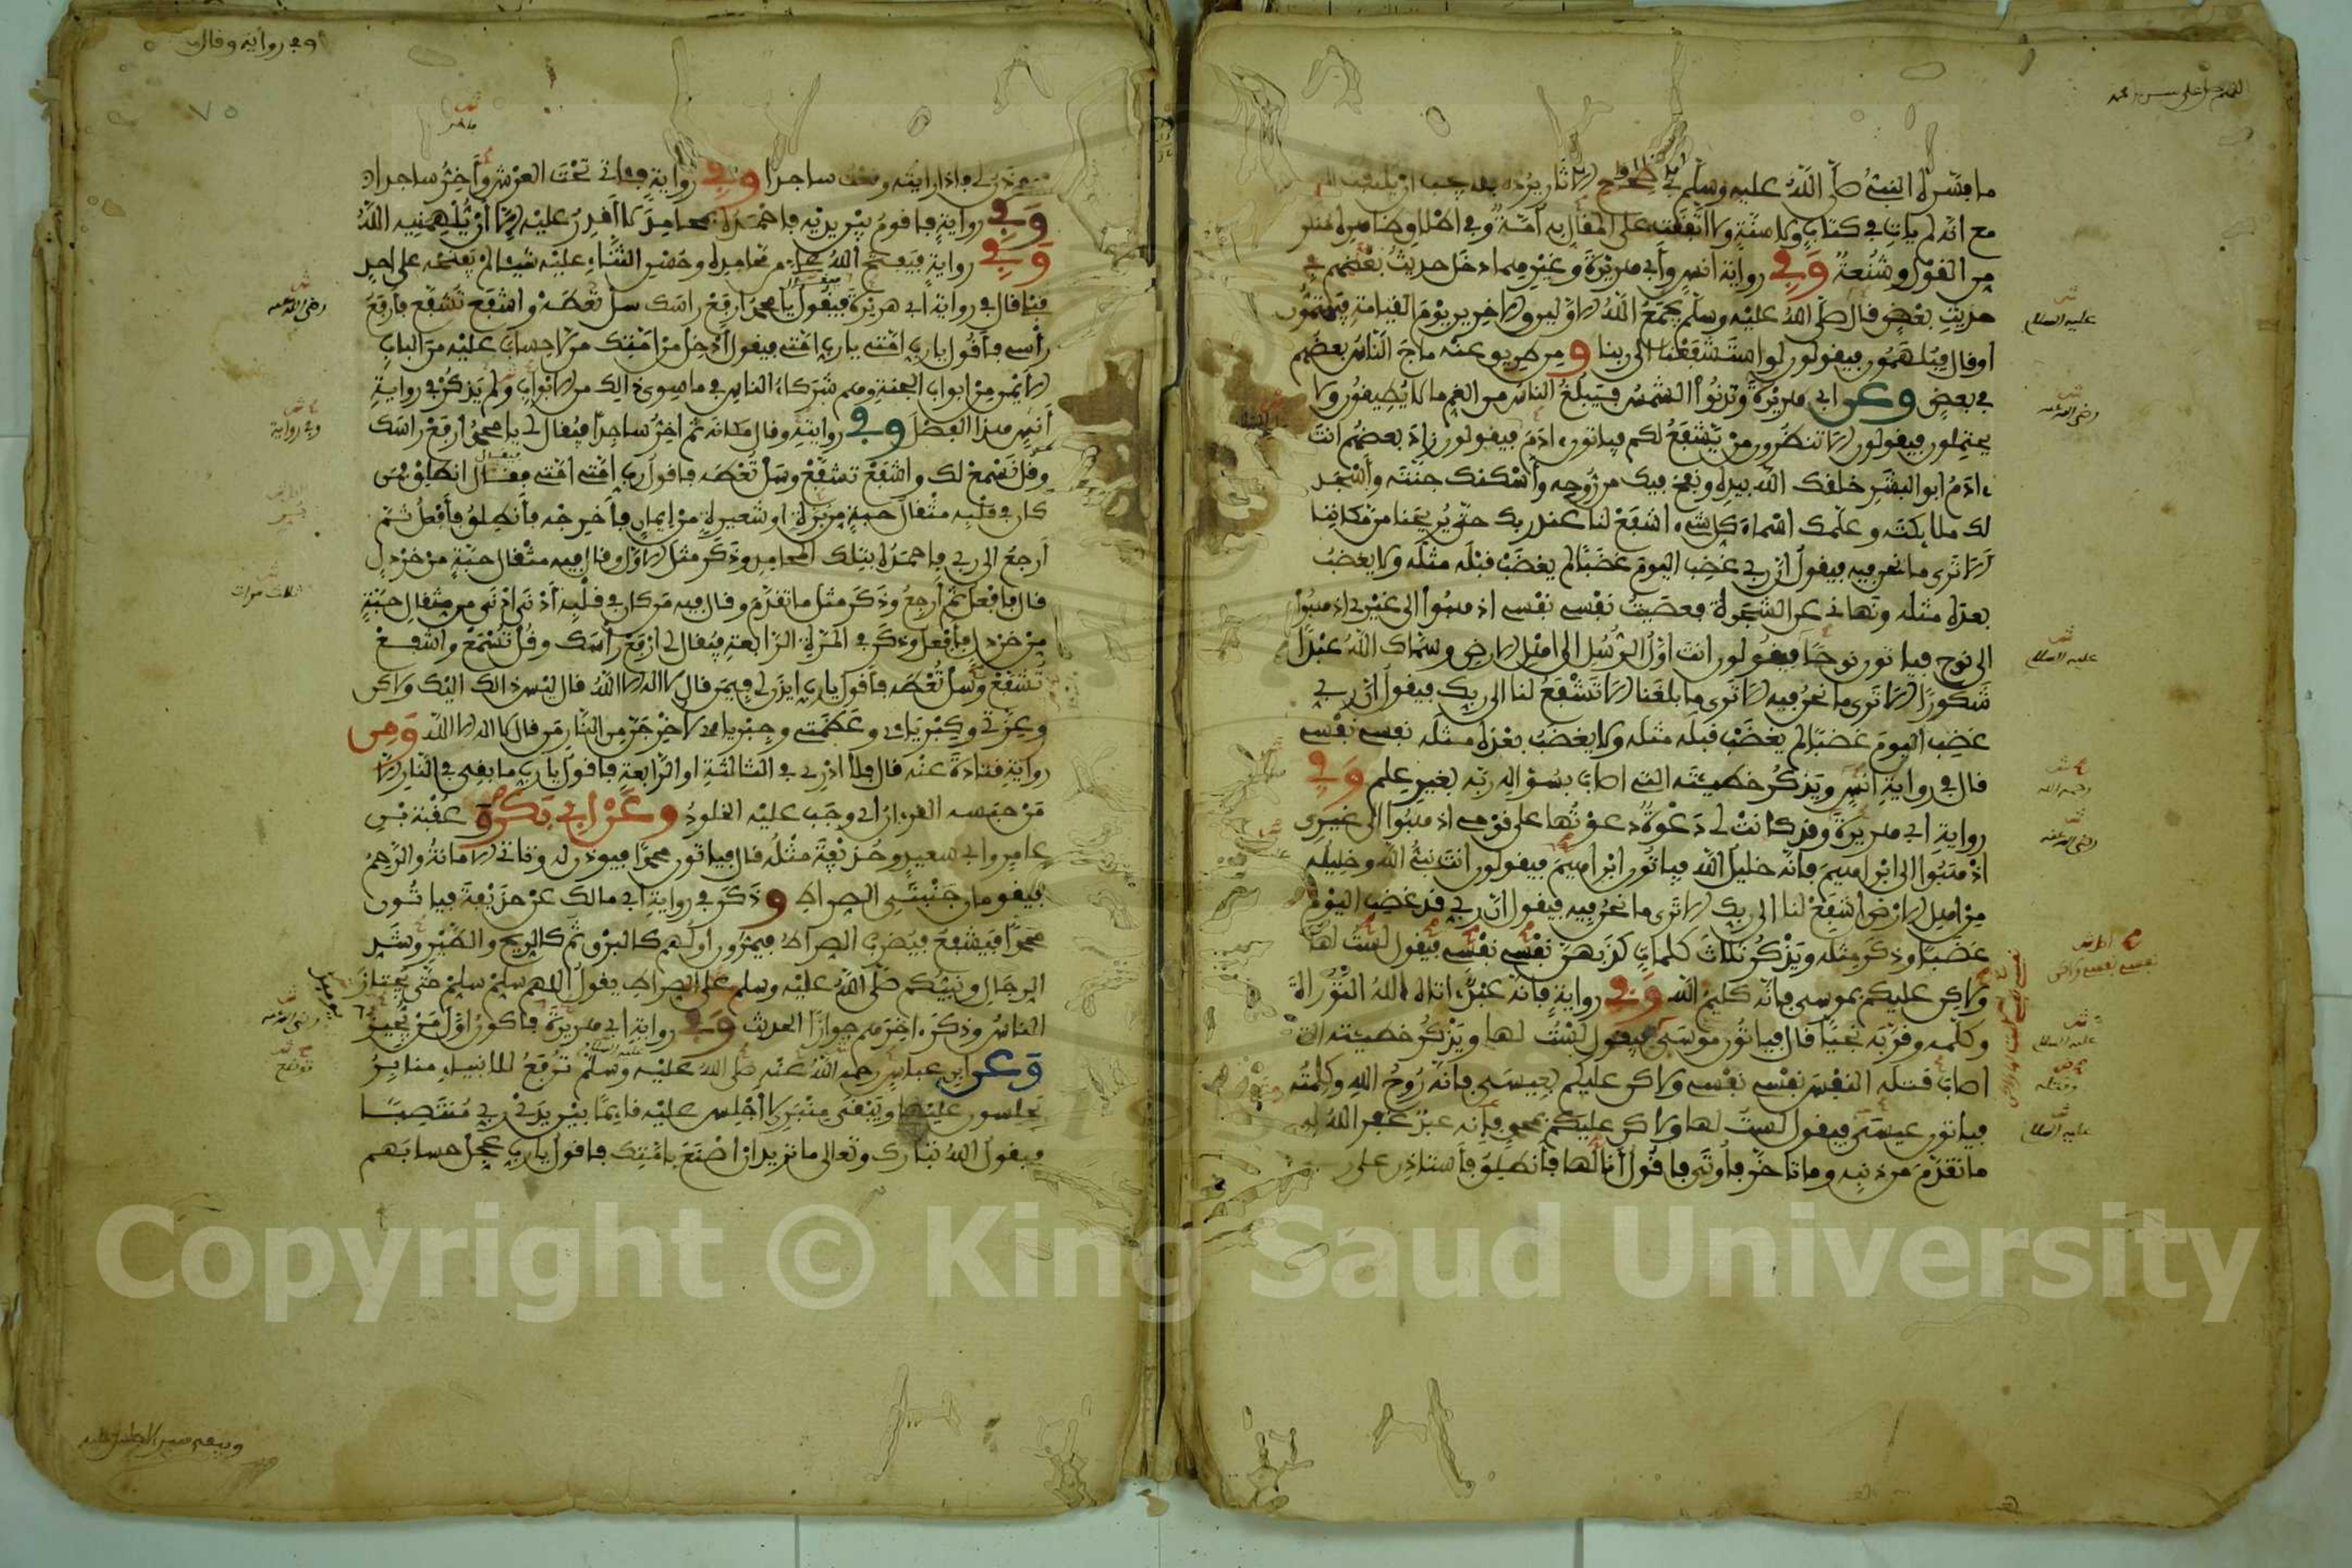 اللهم صل على سيدنا محمد
ما فسره النبي صلى الله عليه وسلم في صحيح الآثار يرده فلا يجب أن يلتفت
مع أنه لم يات في كتاب ولا سنة ولا اتفقت على المقال به أمة وفي إطلاق ظاهره منكر
من القول وشنعة وفي رواية أنس وأبي هريرة وغيرهما دخل حديث بعضهم في
حديث بعض قال صلى الله عليه وسلم يجمع الله الأولين والآخرين يوم القيامة فيهتمون
أو قال فيلهمون فيقولون لو استشفعنا إلى ربنا ومن طريق عنه ماج الناس بعضهم
في بعض وعن أبي هريرة وتدنوا الشمس فيبلغ الناس من الغم ما لا يطيقون ولا
يحتملون فيقولون ألا تنظرون من يشفع لكم فياتون ءادم فيقولون زاد بعضهم أنت
ءادم أبو البشر خلقك الله بيده ونفخ فيك من روحه وأسكنك جنته وأسجد
لك ملائكته وعلمك أسماء كل شيء اشفع لنا عند ربك حتى يريحنا من مكاننا
ألا ترى ما نحن فيه فيقول إن ربي غضب اليوم غضبا لم يغضب قبله مثله ولا يغضب
بعده مثله ونهاني عن الشجرة فعصيت نفسي نفسي اذهبوا إلى غيري اذهبوا
إلى نوح فياتون نوحا فيقولون أنت أول الرسل إلى أهل الأرض وسماك الله عبدا
شكورا ألا ترى ما نحن فيه ألا ترى ما بلغنا ألا تشفع لنا إلى ربك فيقول إن ربي
غضب اليوم غضبا لم يغضب قبله مثله ولا يغضب بعده مثله نفسي نفسي
قال في رواية أنس ويذكر خطيئته التي أصاب بسؤاله ربه بغير علم وفي
رواية أبي هريرة وقد كانت لي دعوة دعوتها على قومي اذهبوا إلى غيري
اذهبوا إلى إبراهيم فإنه خليل الله فياتون إبراهيم فيقولون أنت نبي الله وخليله
من أهل الأرض اشفع لنا إلى ربك ألا ترى ما نحن فيه فيقول إن ربي قد غضب اليوم
غضبا وذكر مثله ويذكر ثلاث كلمات كذبهن نفسي نفسي فيقول لست لها
ولاكن عليكم بموسى فإنه كليم الله وفي رواية فإنه عبد ءاتاه الله التوراة
وكلمه وقربه نجيا قال فياتون موسى فيقول لست لها ويذكر خطيئته التي
أصاب قتله النفس نفسي نفسي ولاكن عليكم بعيسى فإنه روح الله وكلمته
فياتون عيسى فيقول لست لها ولاكن عليكم بمحمد فإنه عبد غفر الله له
ما تقدم من ذنبه وما تأخر فأوتى فأقول أنا لها فأنطلق فأستاذن على
عليه السلام
رضي الله عنه
عليه السلام
رحمه الله
رضي الله عنه
عليه السلام
وقتله
عليه السلام
وفي رواية وقال
٧٥
ربي فيؤذن لي فإذا رأيته وقعت ساجدا وفي رواية فئاتي تحت العرش وأخر ساجدا
وفي رواية فأقوم بين يديه فأحمده بمحامد لا أقدر عليه إلا أن يلهمنيه الله
وفي رواية فيفتح الله علي من محامده وحسن الثناء عليه شيئا لم يفتحه على أحد
قبلي قال في رواية أبي هريرة فيقول يا محمد ارفع رأسك سل تعطه واشفع تشفع فأرفع
رأسي فأقول يا رب أمتي يا رب أمتي فيقول أدخل من أمتك من لا حساب عليه من الباب
الأيمن من أبواب الجنة وهم شركاء الناس في ما سوى ذالك من الأبواب ولم يذكر في رواية
أنس هذا الفصل وفي روايته وقال مكانه ثم أخر ساجدا فيقال لي يا محمد ارفع رأسك
وقل تسمع لك واشفع تشفع وسل تعطه فأقول رب أمتي أمتي فيقال انطلق فمن
كان في قلبه مثقال حبة من برة أو شعيرة من إيمان فأخرجه فأنطلق فأفعل ثم
أرجع إلى ربي فأحمده بتلك المحامد وذكر مثل الأول وقال فيه مثقال حبة من خردل
قال فأفعل ثم أرجع وذكر مثل ما تقدم وقال فيه من كان في قلبه أدنى أدنى من مثقال حبة
من خردل فأفعل وذكر في المرة الرابعة فيقال لي ارفع رأسك وقل تسمع واشفع
تشفع وسل تعطه فأقول يا رب ايذن لي فيمن قال لا إله إلا الله قال ليس ذالك إليك ولاكن
وعزتي وكبريائي وعظمتي وجبريائي لأخرجن من النار من قال لا إله إلا الله ومن
رواية قتادة عنه قال فلا أدري في الثالثة أو الرابعة فأقول يا رب ما بقي في النار إلا
من حبسه القرءان أي وجب عليه الخلود وعن أبي بكرة عقبة بن
عامر وأبي سعيد وحذيفة مثله قال فياتون محمدا فيوذن له وتاتي الأمانة والرحم
فيقومان جنبتي الصراط وذكر في رواية أبي مالك عن حذيفة فياتون
محمدا فيشفع فيضرب الصراط فيمرون أولهم كالبرق ثم كالريح والطير وشد
الرجال ونبيكم صلى الله عليه وسلم على الصراط يقول اللهم سلم سلم حتى يجتاز
الناس وذكر ءاخرهم جوازا الحديث وفي رواية أبي هريرة فأكون أول من يجيز
وعن ابن عباس رحمه الله عنه صلى الله عليه وسلم توضع للأنبياء منابر
يجلسون عليها ويبقى منبري لا أجلس عليه قائما بين يدي ربي منتصبا
فيقول الله تبارك وتعالى ما تريد أن أصنع بأمتك فأقول يا رب عجل حسابهم
رضي الله عنه
وفي رواية
ثلاث مرات
رضي الله عنه
Copyright © King Saud University